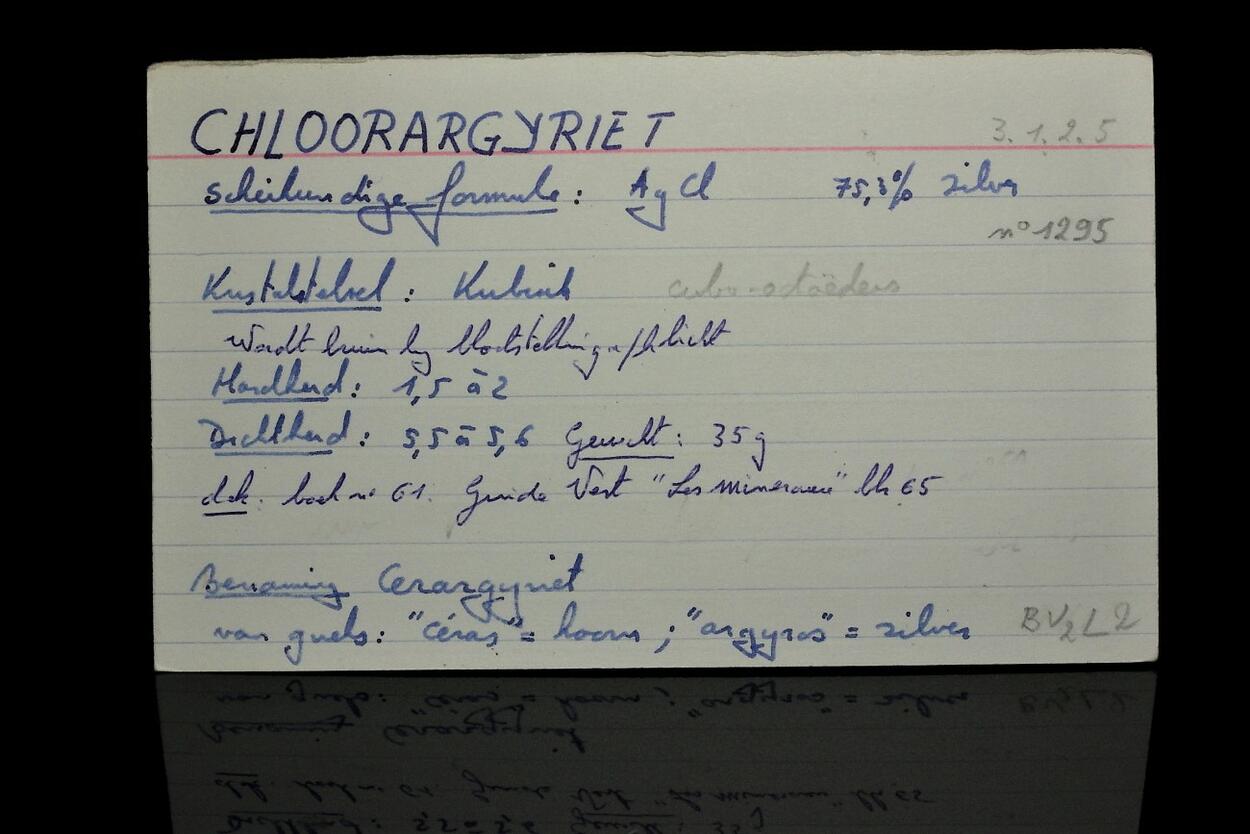 CHLOORARGYRIET 3.1.2.5
Scheikundige formule: AgCl 75,3% zilver
n° 1295
Kristalstelsel: Kubisch cubo-octaëders
Wordt bruin bij blootstelling a/h licht
Hardheid: 1,5 à 2
Dichtheid: 5,5 à 5,6 Gewicht: 35g
dok. boek n° 61. Guide Vert "Les mineraux" blz 65
Benaming Cerargyriet
van grieks: "céras" = hoorn ; "argyros" = zilver BV2L2